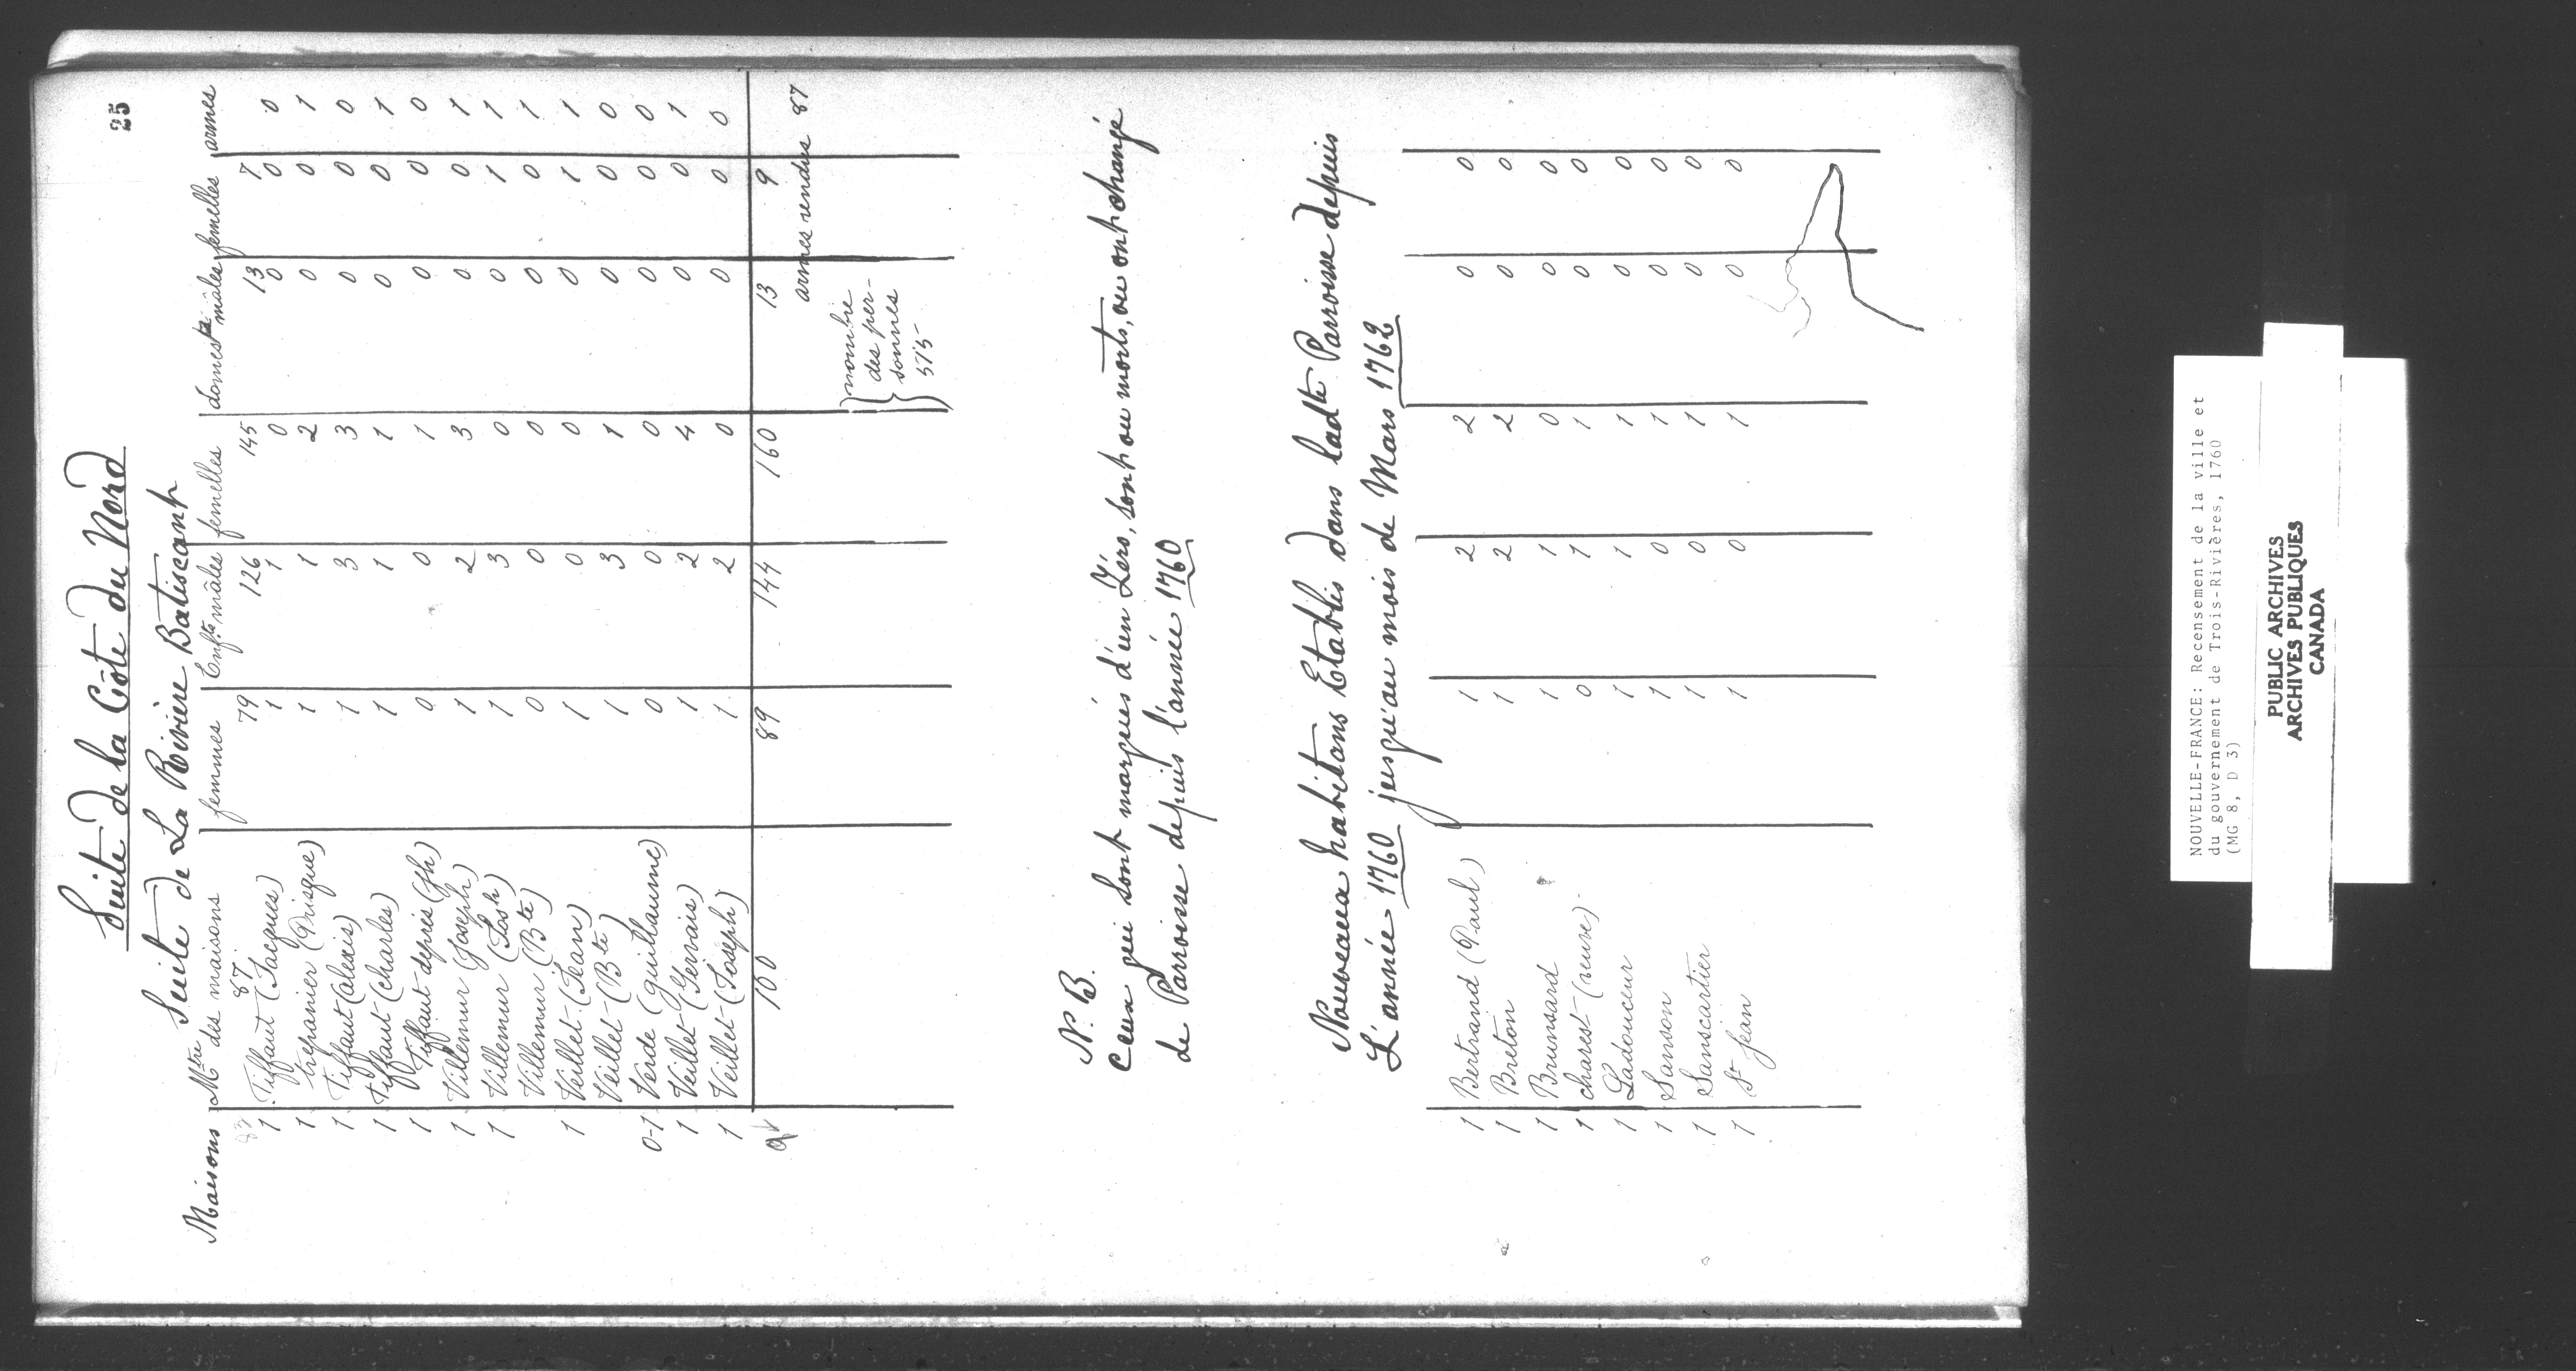 25
Suite de la Côte du Nord
Suite de La Rivière Batiscant
Maisons Mtre des maisons femmes Enfts mâles femelles domestes mâles femelles armes
83 87 79 126 145 13 7
1 Tiffaut (Jacques) 1 1 0 0 0 0
1 trepanier (Prisque) 1 1 2 0 0 1
1 Tiffaut (alexis) 1 3 3 0 0 0
1 tiffaut (charles) 1 1 1 0 0 1
1 Tiffaut depres (jh) 0 0 1 0 0 0
1 Villemur (joseph) 1 2 3 0 0 1
1 Villemur (Josh) 1 3 0 0 1 1
Villemur (Bte) 0 0 0 0 0 1
1 Veillet (Jean) 1 0 0 0 1 1
Veillet (Bte) 1 3 1 0 0 0
0-1 Verde (guillaume) 0 0 0 0 0 0
1 Veillet (Gervais) 1 2 4 0 0 1
1 Veillet (Joseph) 1 2 0 0 0 0
100 89 144 160 13 9
armes rendues 87
nombre
des per-
sonnes
515-
N. B.
Ceux qui sont marqués d'un Zéro, sont ou morts, ou ont changé
de Parroisse depuis l'année 1760
Nouveaux habitans Etablis dans ladte Parroisse depuis
L'année 1760 jusqu'au mois de Mars 1762
1 Bertrand (Paul) 1 2 2 0 0
1 Breton 1 2 2 0 0
1 Brunsard 1 1 0 0 0
1 charest (veuve) 0 1 1 0 0
1 Ladouceur 1 1 1 0 0
1 Sanson 1 0 1 0 0
1 Sanscartier 1 0 1 0 0
1 St jean 1 0 1 0 0
NOUVELLE-FRANCE: Recensement de la ville et
du gouvernement de Trois-Rivières, 1760
(MG 8, D 3)
PUBLIC ARCHIVES
ARCHIVES PUBLIQUES
CANADA